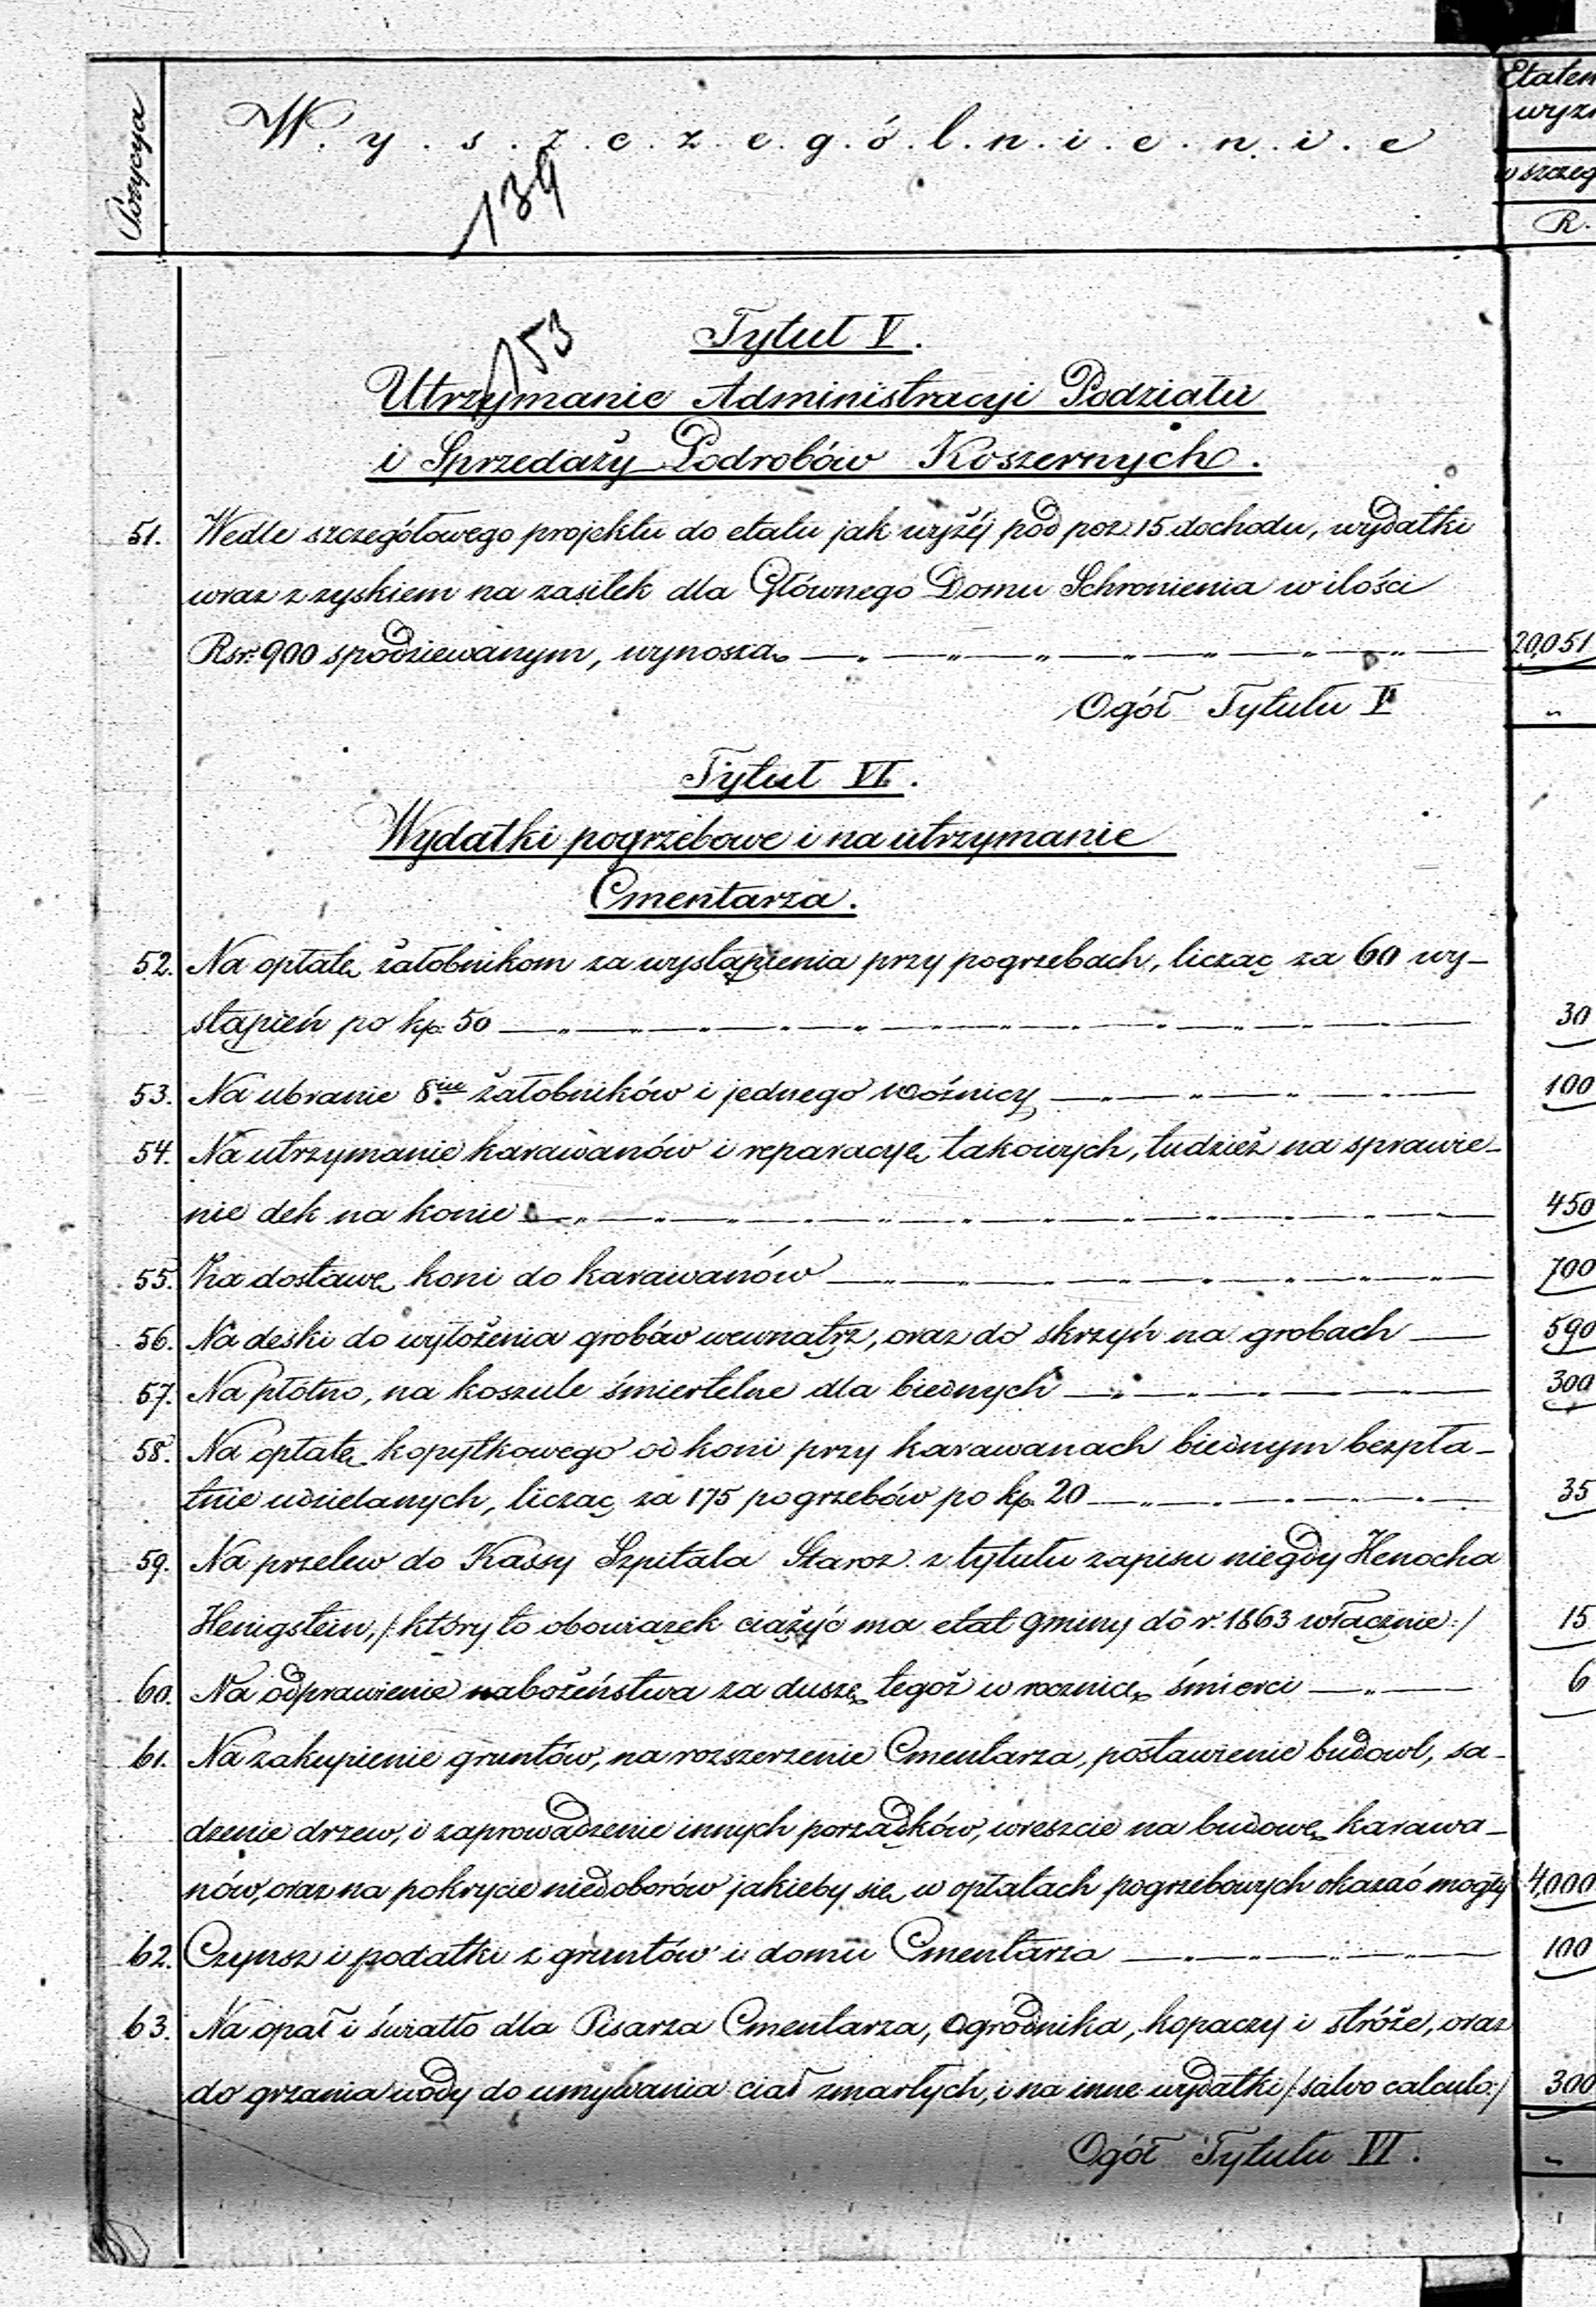 Pozycya
W.y.s.z.c.z.e.g.ó.l.n.i.e.n.i.e
Etatem
wyzn
w szczeg
R.
139
153
Tytuł V.
Utrzymanie Administracyi Podziału
i Sprzedaży Podrobów Koszernych.
51. Wedle szczegółowego projektu do etatu jak wyżéj pod poz. 15 dochodu, wydatki
wraz z zyskiem na zasiłek dla Głównego Domu Schronienia w ilości
Rsr. 900 spodziewanym, wynoszą 20,051
Ogół Tytułu V "
Tytuł VI.
Wydatki pogrzebowe i na utrzymanie
Cmentarza.
52. Na opłatę żałobnikom za wystąpienia przy pogrzebach, licząc za 60 wy-
stąpień po kp. 50 30
53. Na ubranie 8iu żałobników i jednego woźnicy 100
54. Na utrzymanie karawanów i reparacyę takowych, tudzież na sprawie-
nie dek na konie 450
55. Za dostawę koni do karawanów 700
56. Na deski do wyłożenia grobów wewnątrz, oraz do skrzyń na grobach 590
57. Na płótno, na koszule śmiertelne dla biednych 300
58. Na opłatę kopytkowego od koni przy karawanach biednym bezpła-
tnie udzielanych, licząc za 175 pogrzebów po kp. 20 35
59. Na przelew do Kassy Szpitala Staroz. z tytułu zapisu niegdy Henocha
Henigstein, /: który to obowiązek ciążyć ma etat gminy do r. 1863 włącznie :/ 15
60. Na odprawienie nabożeństwa za duszę tegoż w rocznicę śmierci 6
61. Na zakupienie gruntów, na rozszerzenie Cmentarza, postawienie budowl, sa-
dzenie drzew, i zaprowadzenie innych porządków, wreszcie na budowę karawa-
nów, oraz na pokrycie niedoborów jakieby się w opłatach pogrzebowych okazać mogły 4,000
62. Czynsz i podatki z gruntów i domu Cmentarza 100
63. Na opał i światło dla Pisarza Cmentarza, Ogrodnika, kopaczy i stróże, oraz
do grzania wody do umywania ciał zmarłych, i na inne wydatki /: salvo calculo :/ 300
Ogół Tytułu VI. "